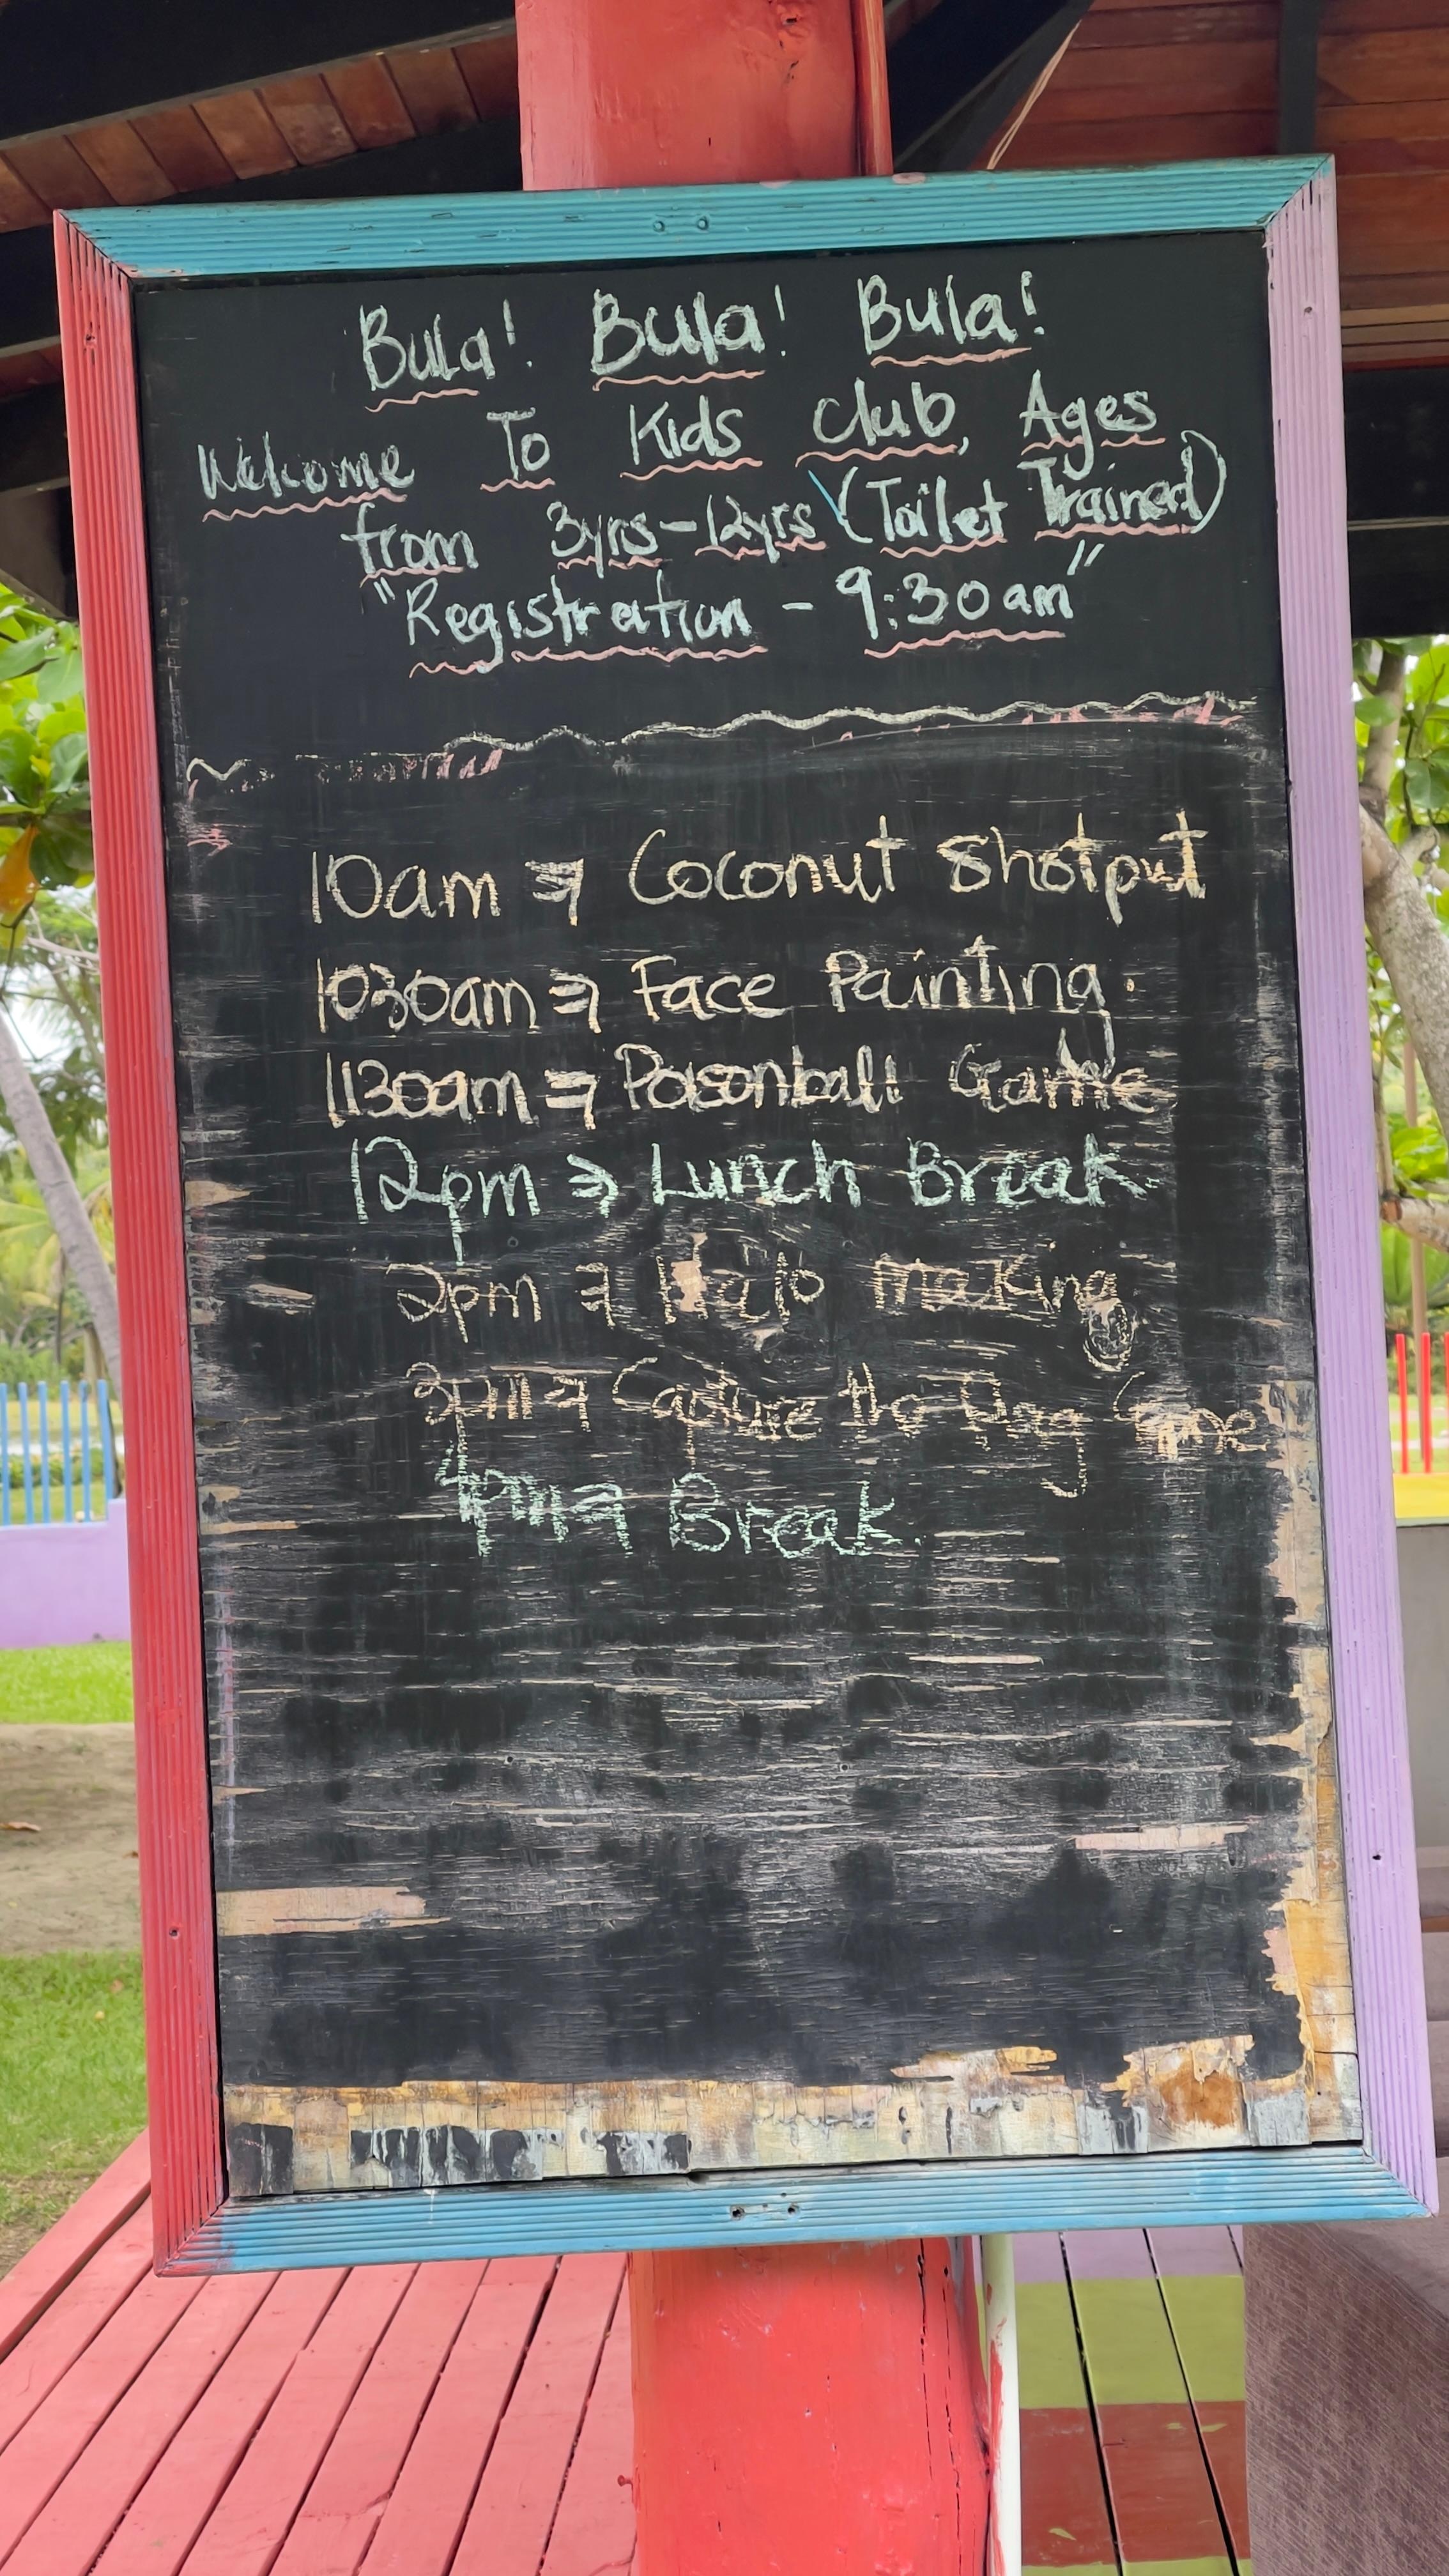 Bula! Bula! Bula!
Welcome To Kids Club, Ages
from 3yrs-12yrs (Toilet Trained)
"Registration - 9:30am"
10am ⇒ Coconut Shotput
1030am ⇒ Face Painting.
1130am ⇒ Poisonball Game
12pm ⇒ Lunch Break
2pm ⇒ Halo making
3pm ⇒ Capture the flag Game
4pm ⇒ Break.